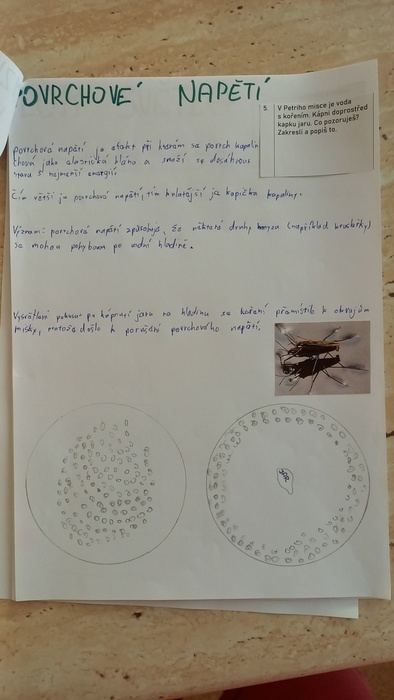 POVRCHOVÉ NAPĚTÍ
5. V Petriho misce je voda
s kořením. Kápni doprostřed
kapku jaru. Co pozoruješ?
Zakresli a popiš to.
povrchové napětí je efekt při kterém se povrch kapalin
chová jako elastická blána a snaží se dosáhnout
stavu s nejmenší energií
Čím větší je povrchové napětí, tím kulatější je kapička kapaliny.
Význam: povrchové napětí způsobuje, že některé druhy hmyzu (například bruslařky)
se mohou pohybovat po vodní hladině.
Vysvětlení pokusu: po kápnutí jaru na hladinu se koření přemístilo k okrajům
misky, protože došlo k porušení povrchového napětí.
JAR